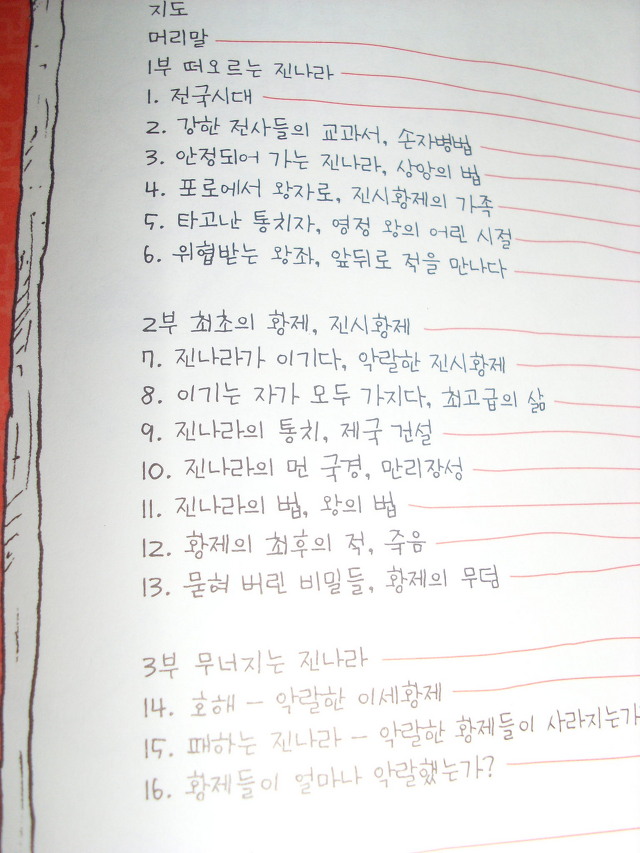 지도
머리말
1부 떠오르는 진나라
1. 전국시대
2. 강한 전사들의 교과서, 손자병법
3. 안정되어 가는 진나라, 상앙의 법
4. 포로에서 왕자로, 진시황제의 가족
5. 타고난 통치자, 영정 왕의 어린 시절
6. 위협받는 왕좌, 앞뒤로 적을 만나다
2부 최초의 황제, 진시황제
7. 진나라가 이기다, 악랄한 진시황제
8. 이기는 자가 모두 가지다, 최고급의 삶
9. 진나라의 통치, 제국 건설
10. 진나라의 먼 국경, 만리장성
11. 진나라의 법, 왕의 법
12. 황제의 최후의 적, 죽음
13. 묻혀 버린 비밀들, 황제의 무덤
3부 무너지는 진나라
14. 호해 – 악랄한 이세황제
15. 패하는 진나라 – 악랄한 황제들이 사라지는가
16. 황제들이 얼마나 악랄했는가?